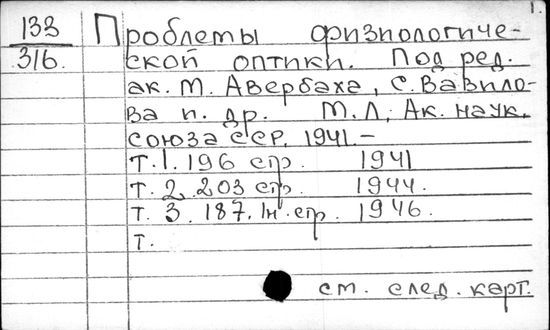 1.
133
316.
Проблемы физиологиче-
ской оптики. Под ред.
ак. М. Авербаха, С. Вавило-
ва и. др. М. Л, Ак. наук.
союза ССР. 1941.-
т. 1. 196 стр. 1941
т. 2. 203 стр. 1944.
т. 3. 187. 1н. стр. 1946.
т.
см. след. карт.